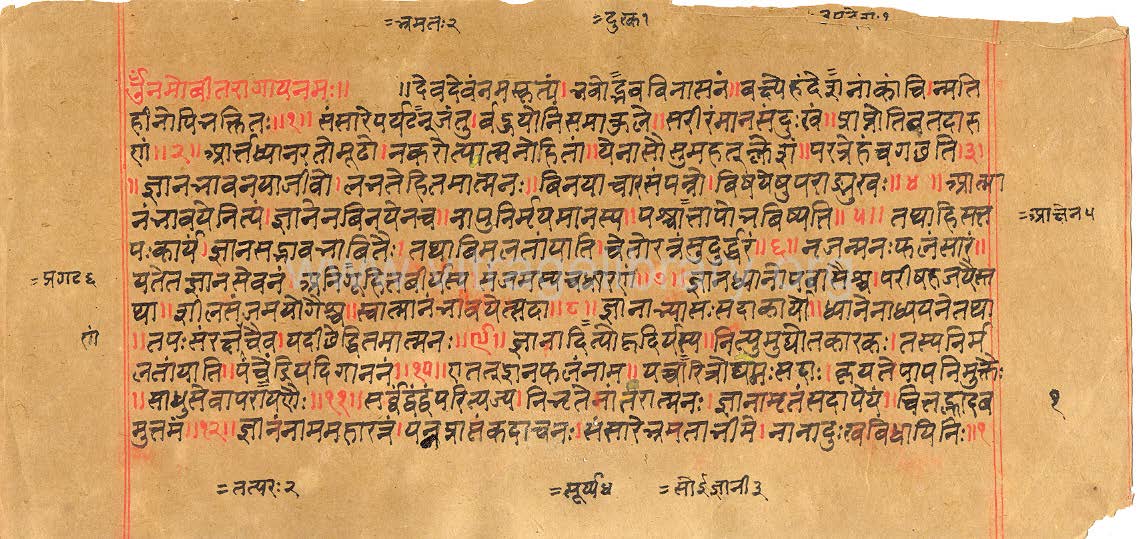 =भ्रमतः२ =दुःक१
ॐनमोवीतरागायनमः॥ ॥देवदेवंनमस्कृत्यं।भवोद्भवविनासनं॥वच्येहंदेशनांकांचि।न्मति
हीनोपिभक्तितः॥१॥संसारेपर्यटन्नूजंतु।र्बहुयोनिसमाकुले॥सरीरंमानसंदुःखं।प्राप्नोतिवतदारु
णां॥२॥आर्त्तध्यानरतोमूढो।नकरोत्यात्मनोहितां॥येनासौसुमहत्क्लेशं।परत्रेहचगछति॥३॥
॥ज्ञानभावनयाजीवो।लभतेहितमात्मनः॥विनयाचारसंपन्नो।विषयेषुपराङ्मुखः॥४॥आत्मा
नंभावयेनित्यं।ज्ञानेनविनयेनच॥मापुनिर्मयमानस्य।पश्चात्तापोभविष्यति॥५॥तथाहिसत्त
पःकार्यं।ज्ञानसद्भावभावितैः।तथाविमलतांयाति।चेतोरत्नंसुदुर्द्धरं॥६॥नृजन्मनःफलंसारं॥
यतेतज्ञानसेवनं।अनिगूहितवीर्यस्य।संजमस्यचधारणं॥७॥ज्ञानध्यानोपवासैश्च।परीषहजयैस्त
था॥शीलसंजमयोगैश्च।स्वात्मानंभावयेत्सदा॥८॥ज्ञानाभ्यासःसदाकार्यो।ध्यानेनाध्ययनेतथा
॥तपःसंरक्षणंचैव।यदीछेद्धितमात्मनः॥९॥ज्ञानादित्योहृदिर्यस्य।नित्यमुद्योतकारकः।तस्यनिर्म
लतांयाति।पंचेंद्रियदिगाननं॥१०॥एतत्ज्ञानफलंनाम।यच्चारित्रोद्यमःसदाः।क्रयतेपापनिर्मुक्तैः
॥साधुसेवापरायणैः॥११॥सर्वद्वंद्वंपरित्यज्य।निभृतेनांतरात्मनः।ज्ञानामृतंसदापेयं।चित्तह्लादव
मुत्तमं॥१२॥ज्ञानंनाममहारत्नं।यन्नप्राप्तंकदाचनः।संसारेभ्रमताभीमे।नानादुःखविधायिनिः॥१
=प्रगट६
णां
१
=तत्परः२ =सूर्य्य =सोईज्ञानी३